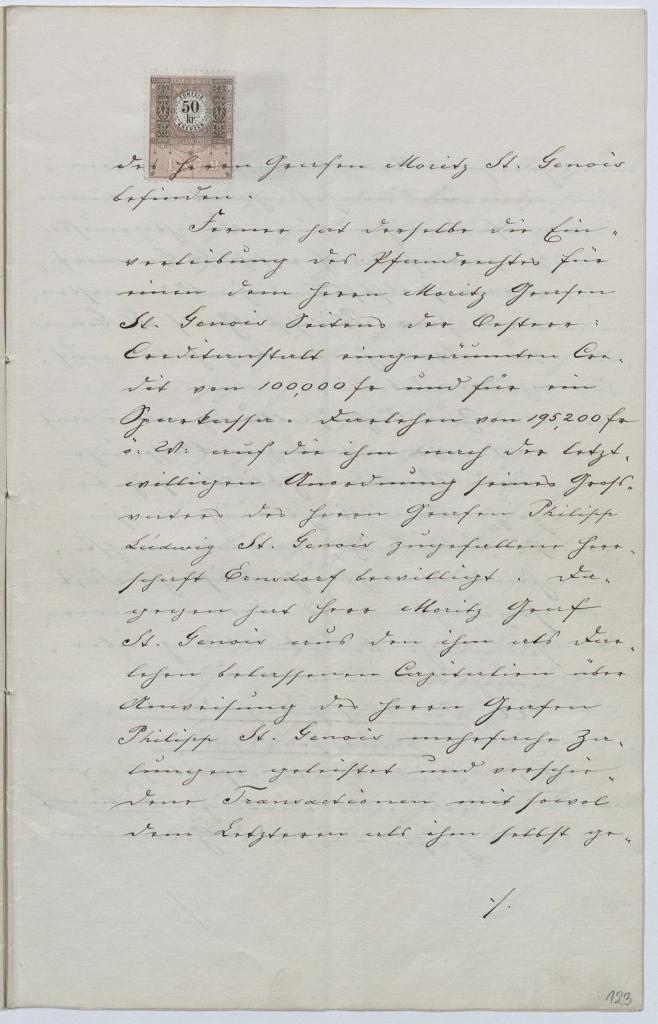 FÜNFZIG
50
kr.
KREUZER
des Herrn Grafen Moritz St. Genois
befinden.
Ferner hat derselbe die Ein-
verleibung des Pfandrechtes für
einen dem Herrn Moritz Grafen
St. Genois Seitens der Oesterr:
Creditanstalt eingeräumten Cre-
dit von 100,000 fr und für ein
Sparkassa-Darlehen von 195,200 fr
ö: W: auf die ihm nach der letzt-
willigen Anordnung seines Gross-
vaters des Herrn Grafen Philipp
Ludwig St. Genois zugefallene Herr-
schaft Ernsdorf bewilligt. Da-
gegen hat Herr Moritz Graf
St. Genois aus den ihm als Dar-
lehen belassenen Capitalien über
Anweisung des Herrn Grafen
Philipp St. Genois mehrfache Za-
lungen geleistet und verschie-
dene Transactionen mit sowol
dem Letzteren als ihm selbst ge-
·/.
123